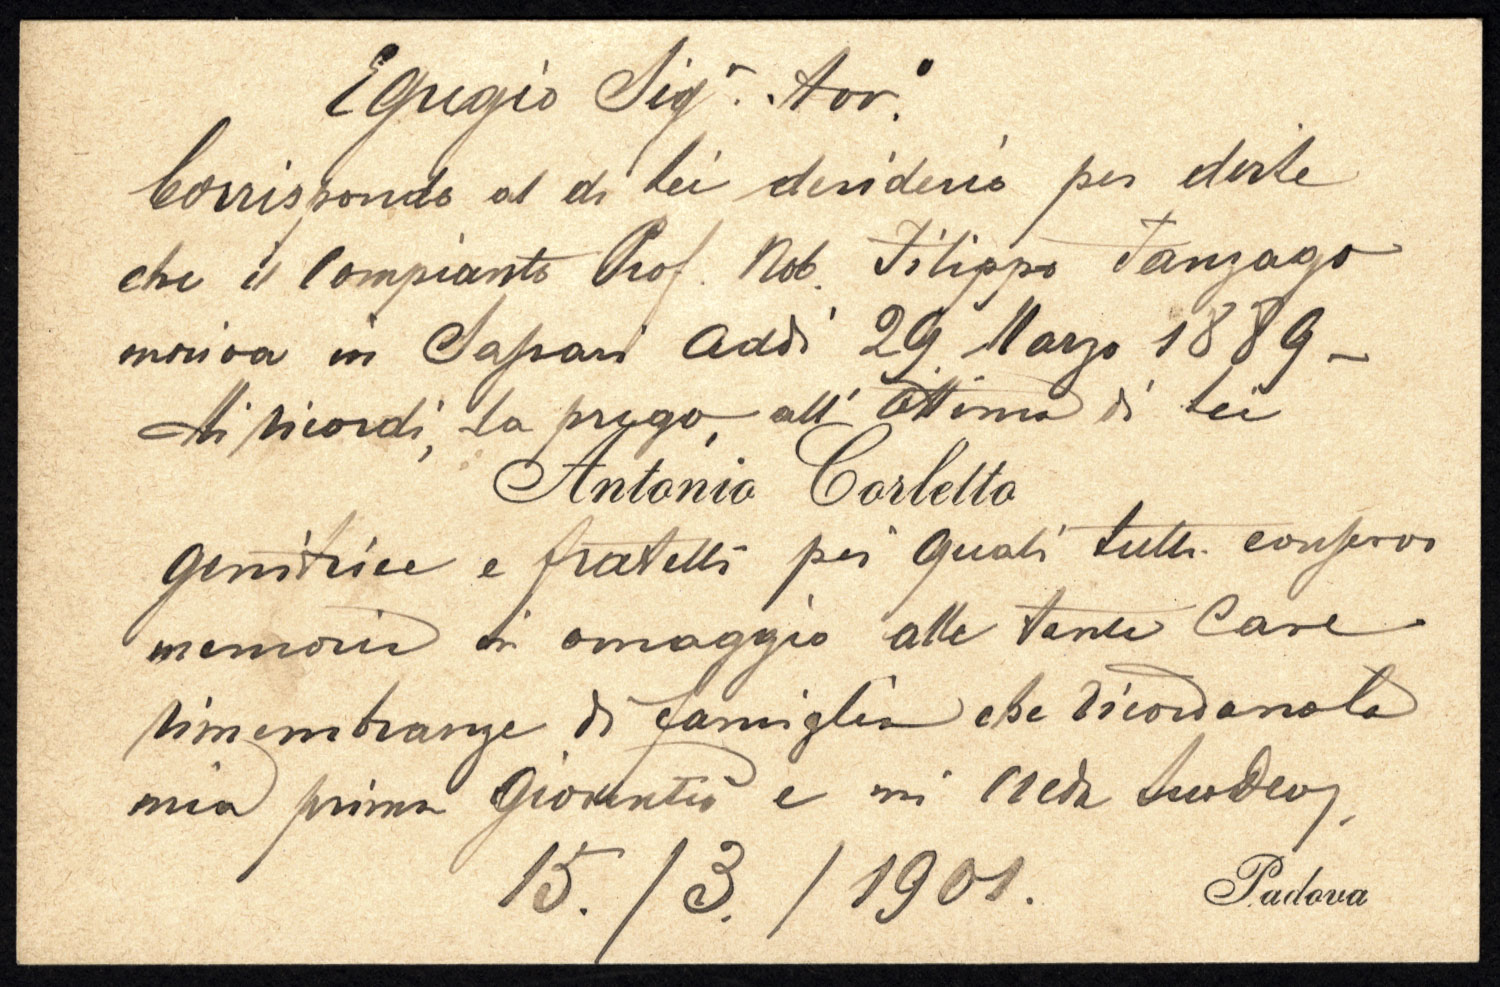 Egregio Sigr. Avv.o
Corrispondo al di Lei desiderio per dirle
che il Compianto Prof. Nob. Filippo Fanzago
moriva in Sassari addì 29 Marzo 1889 –
Mi ricordi, La prego, all' ottima di Lei
Antonio Corletto
genitrice e fratelli pei quali tutti conservo
memoria in omaggio alle tante Care
rimembranze di famiglia che ricordano la
mia prima Gioventù e mi creda Suo Dev.
15. / 3. / 1901.
Padova